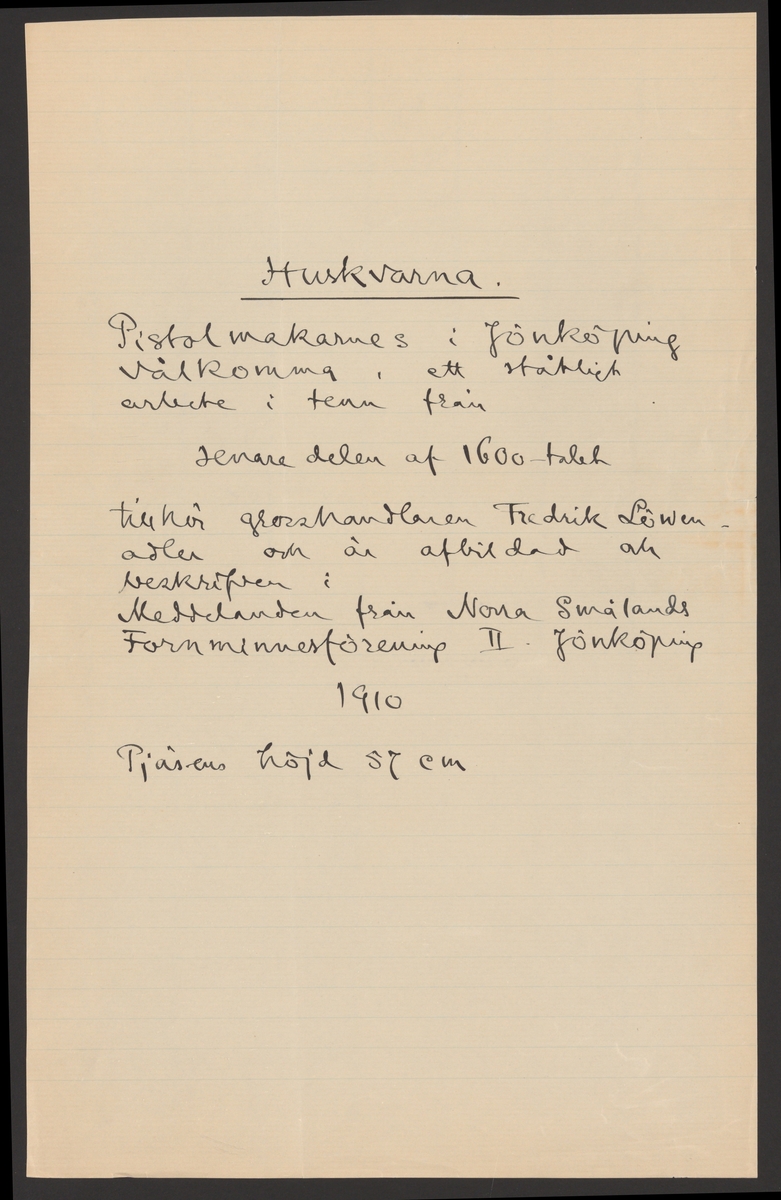 Huskvarna.
Pistolmakarnes i Jönköping
välkomma, ett ståtligt
arbete i tenn från
senare delen af 1600-talet
tillhör grosshandlaren Fredrik Löwen-
adler och är afbildad och
beskrifven i
Meddelanden från Norra Smålands
Fornminnesförening II. Jönköping
1910
Pjäsens höjd 57 cm